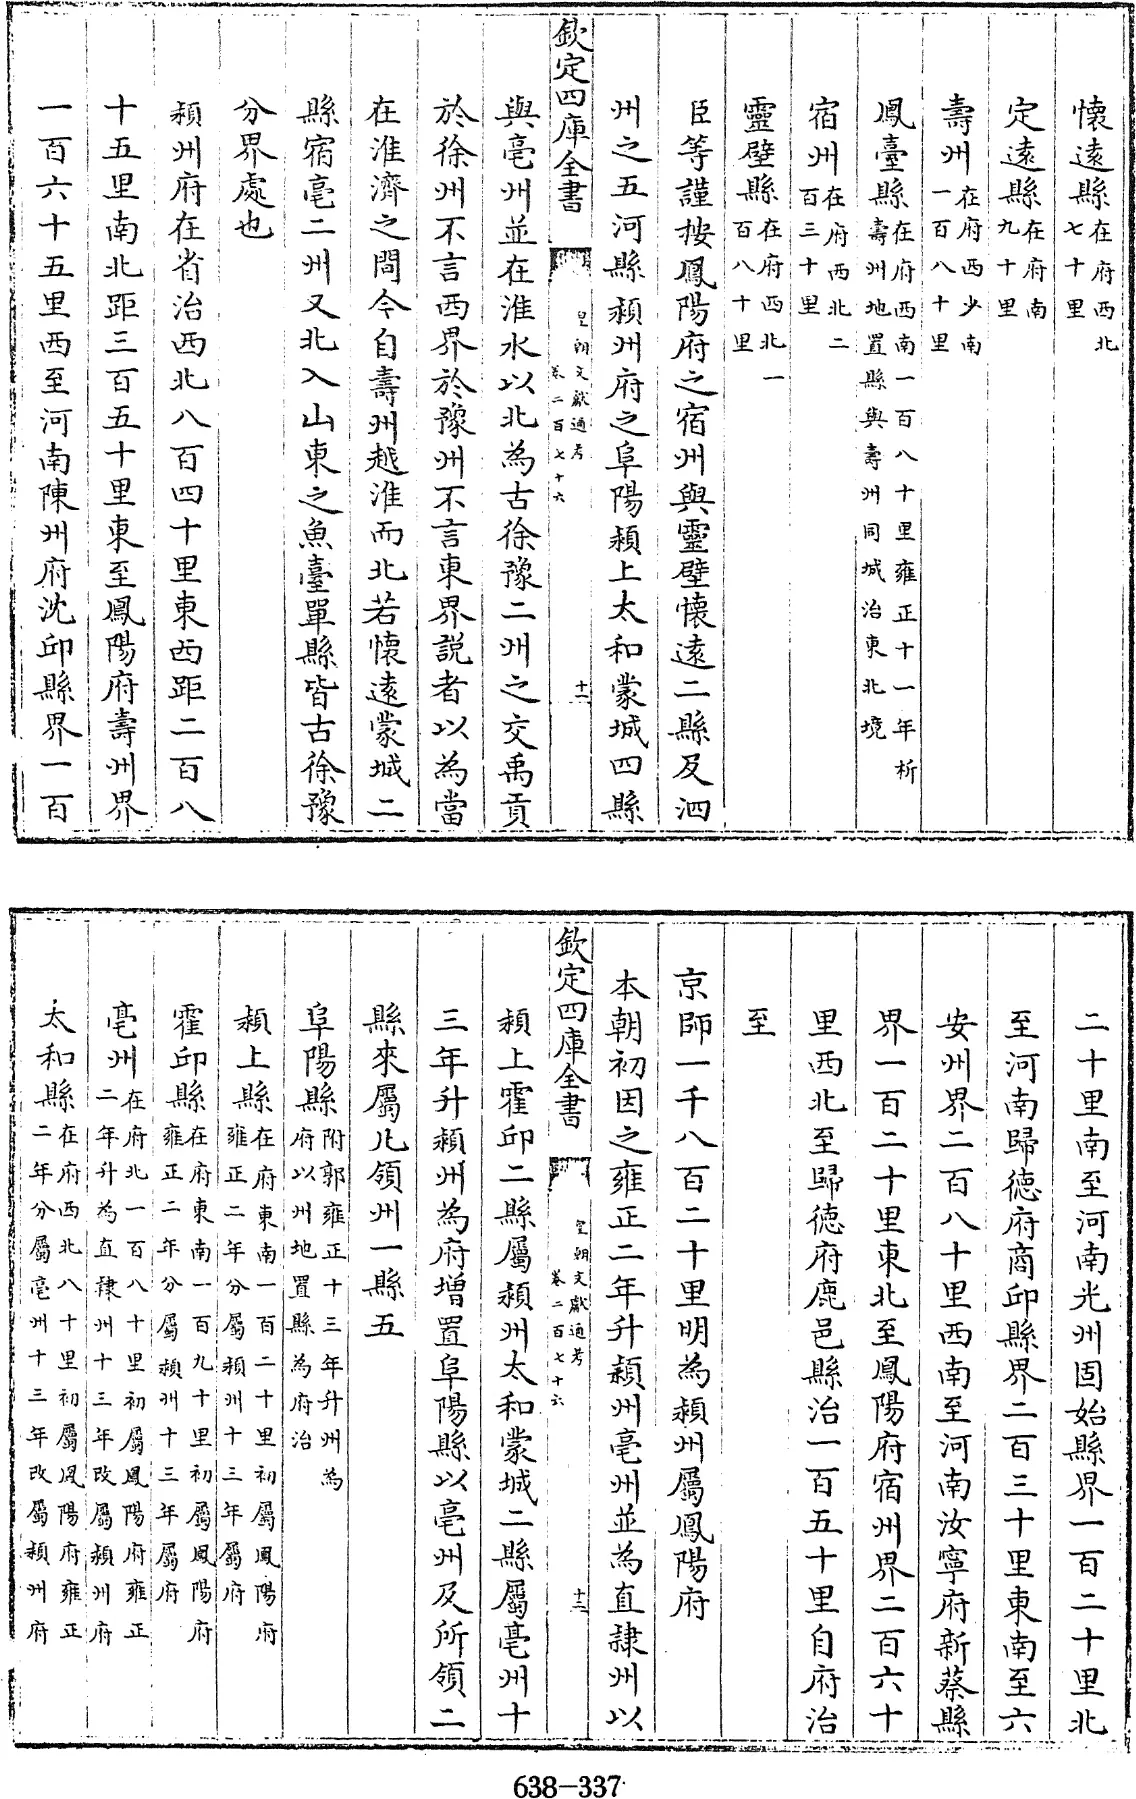 懷遠縣在府西北七十里
定遠縣在府南九十里
壽州在府西少南一百八十里
鳳臺縣在府西南一百八十里雍正十一年析壽州地置縣與壽州同城治東北境
宿州在府西北二百三十里
靈壁縣在府西北一百八十里
臣等謹按鳳陽府之宿州與靈壁懷遠二縣及泗
州之五河縣潁州府之阜陽潁上太和蒙城四縣
欽定四庫全書 皇朝文獻通考卷二百七十六 十二
與亳州並在淮水以北為古徐豫二州之交禹貢
於徐州不言西界於豫州不言東界説者以為當
在淮濟之間今自壽州越淮而北若懷遠蒙城二
縣宿亳二州又北入山東之魚臺單縣皆古徐豫
分界處也
潁州府在省治西北八百四十里東西距二百八
十五里南北距三百五十里東至鳳陽府壽州界
一百六十五里西至河南陳州府沈邱縣界一百
二十里南至河南光州固始縣界一百二十里北
至河南歸德府商邱縣界二百三十里東南至六
安州界二百八十里西南至河南汝寧府新蔡縣
界一百二十里東北至鳳陽府宿州界二百六十
里西北至歸德府鹿邑縣治一百五十里自府治
至
京師一千八百二十里明為潁州屬鳳陽府
本朝初因之雍正二年升潁州亳州並為直隷州以
欽定四庫全書 皇朝文獻通考卷二百七十六 十三
潁上霍邱二縣屬潁州太和蒙城二縣屬亳州十
三年升潁州為府增置阜陽縣以亳州及所領二
縣來屬凡領州一縣五
阜陽縣附郭雍正十三年升州為府以州地置縣為府治
潁上縣在府東南一百二十里初屬鳳陽府雍正二年分屬潁州十三年屬府
霍邱縣在府東南一百九十里初屬鳳陽府雍正二年分屬潁州十三年屬府
亳州在府北一百八十里初屬鳳陽府雍正二年升為直隷州十三年改屬潁州府
太和縣在府西北八十里初屬鳳陽府雍正二年分屬亳州十三年改屬潁州府
638-337